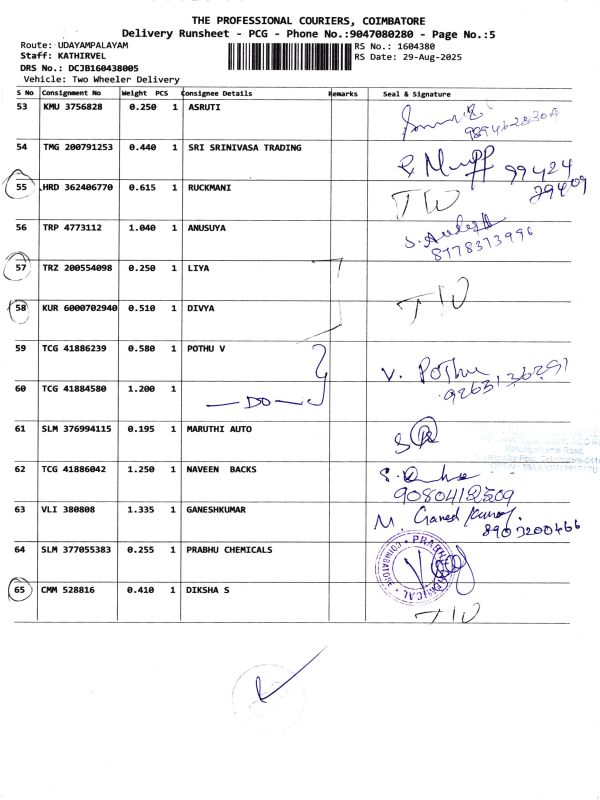 THE PROFESSIONAL COURIERS, COIMBATORE
Delivery Runsheet - PCG - Phone No.:9047080280 - Page No.:5
Route: UDAYAMPALAYAM RS No.: 1604380
Staff: KATHIRVEL RS Date: 29-Aug-2025
DRS No.: DCJB160438005
Vehicle: Two Wheeler Delivery
S No Consignment No Weight PCS Consignee Details Remarks Seal & Signature
53 KMU 3756828 0.250 1 ASRUTI
54 TMG 200791253 0.440 1 SRI SRINIVASA TRADING 99424
79409
55 HRD 362406770 0.615 1 RUCKMANI
56 TRP 4773112 1.040 1 ANUSUYA
8778373996
57 TRZ 200554098 0.250 1 LIYA
58 KUR 6000702940 0.510 1 DIVYA
59 TCG 41886239 0.580 1 POTHU V V. Pothu
9263136291
60 TCG 41884580 1.200 1 —DO—
61 SLM 376994115 0.195 1 MARUTHI AUTO
62 TCG 41886042 1.250 1 NAVEEN BACKS
9080412509
63 VLI 380808 1.335 1 GANESHKUMAR M. Ganesh Kumar.
8903200466
64 SLM 377055383 0.255 1 PRABHU CHEMICALS
65 CMM 528816 0.410 1 DIKSHA S